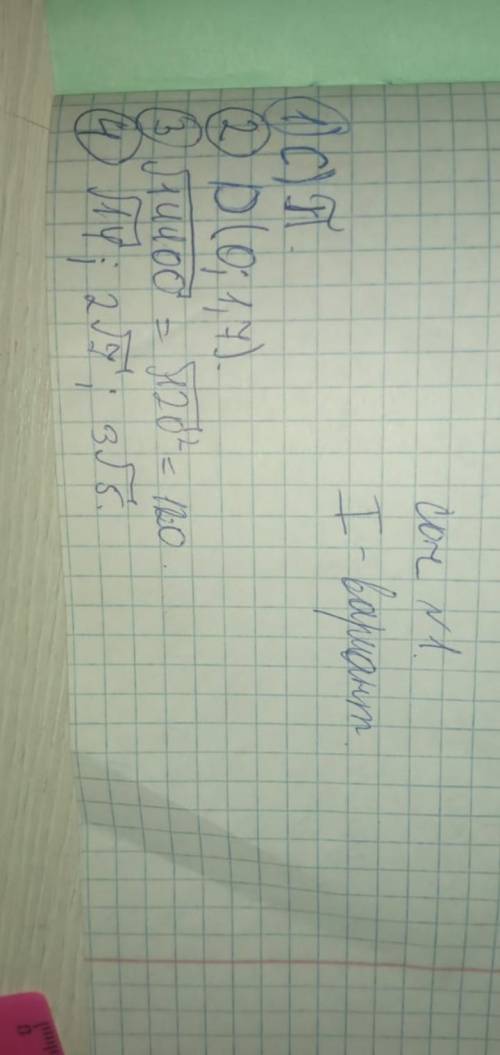 Соч №1.
I - вариант.
1) C) π.
2) D(0; 1,7).
3) √14400 = √120² = 120.
4) √17; 2√7; 3√5.